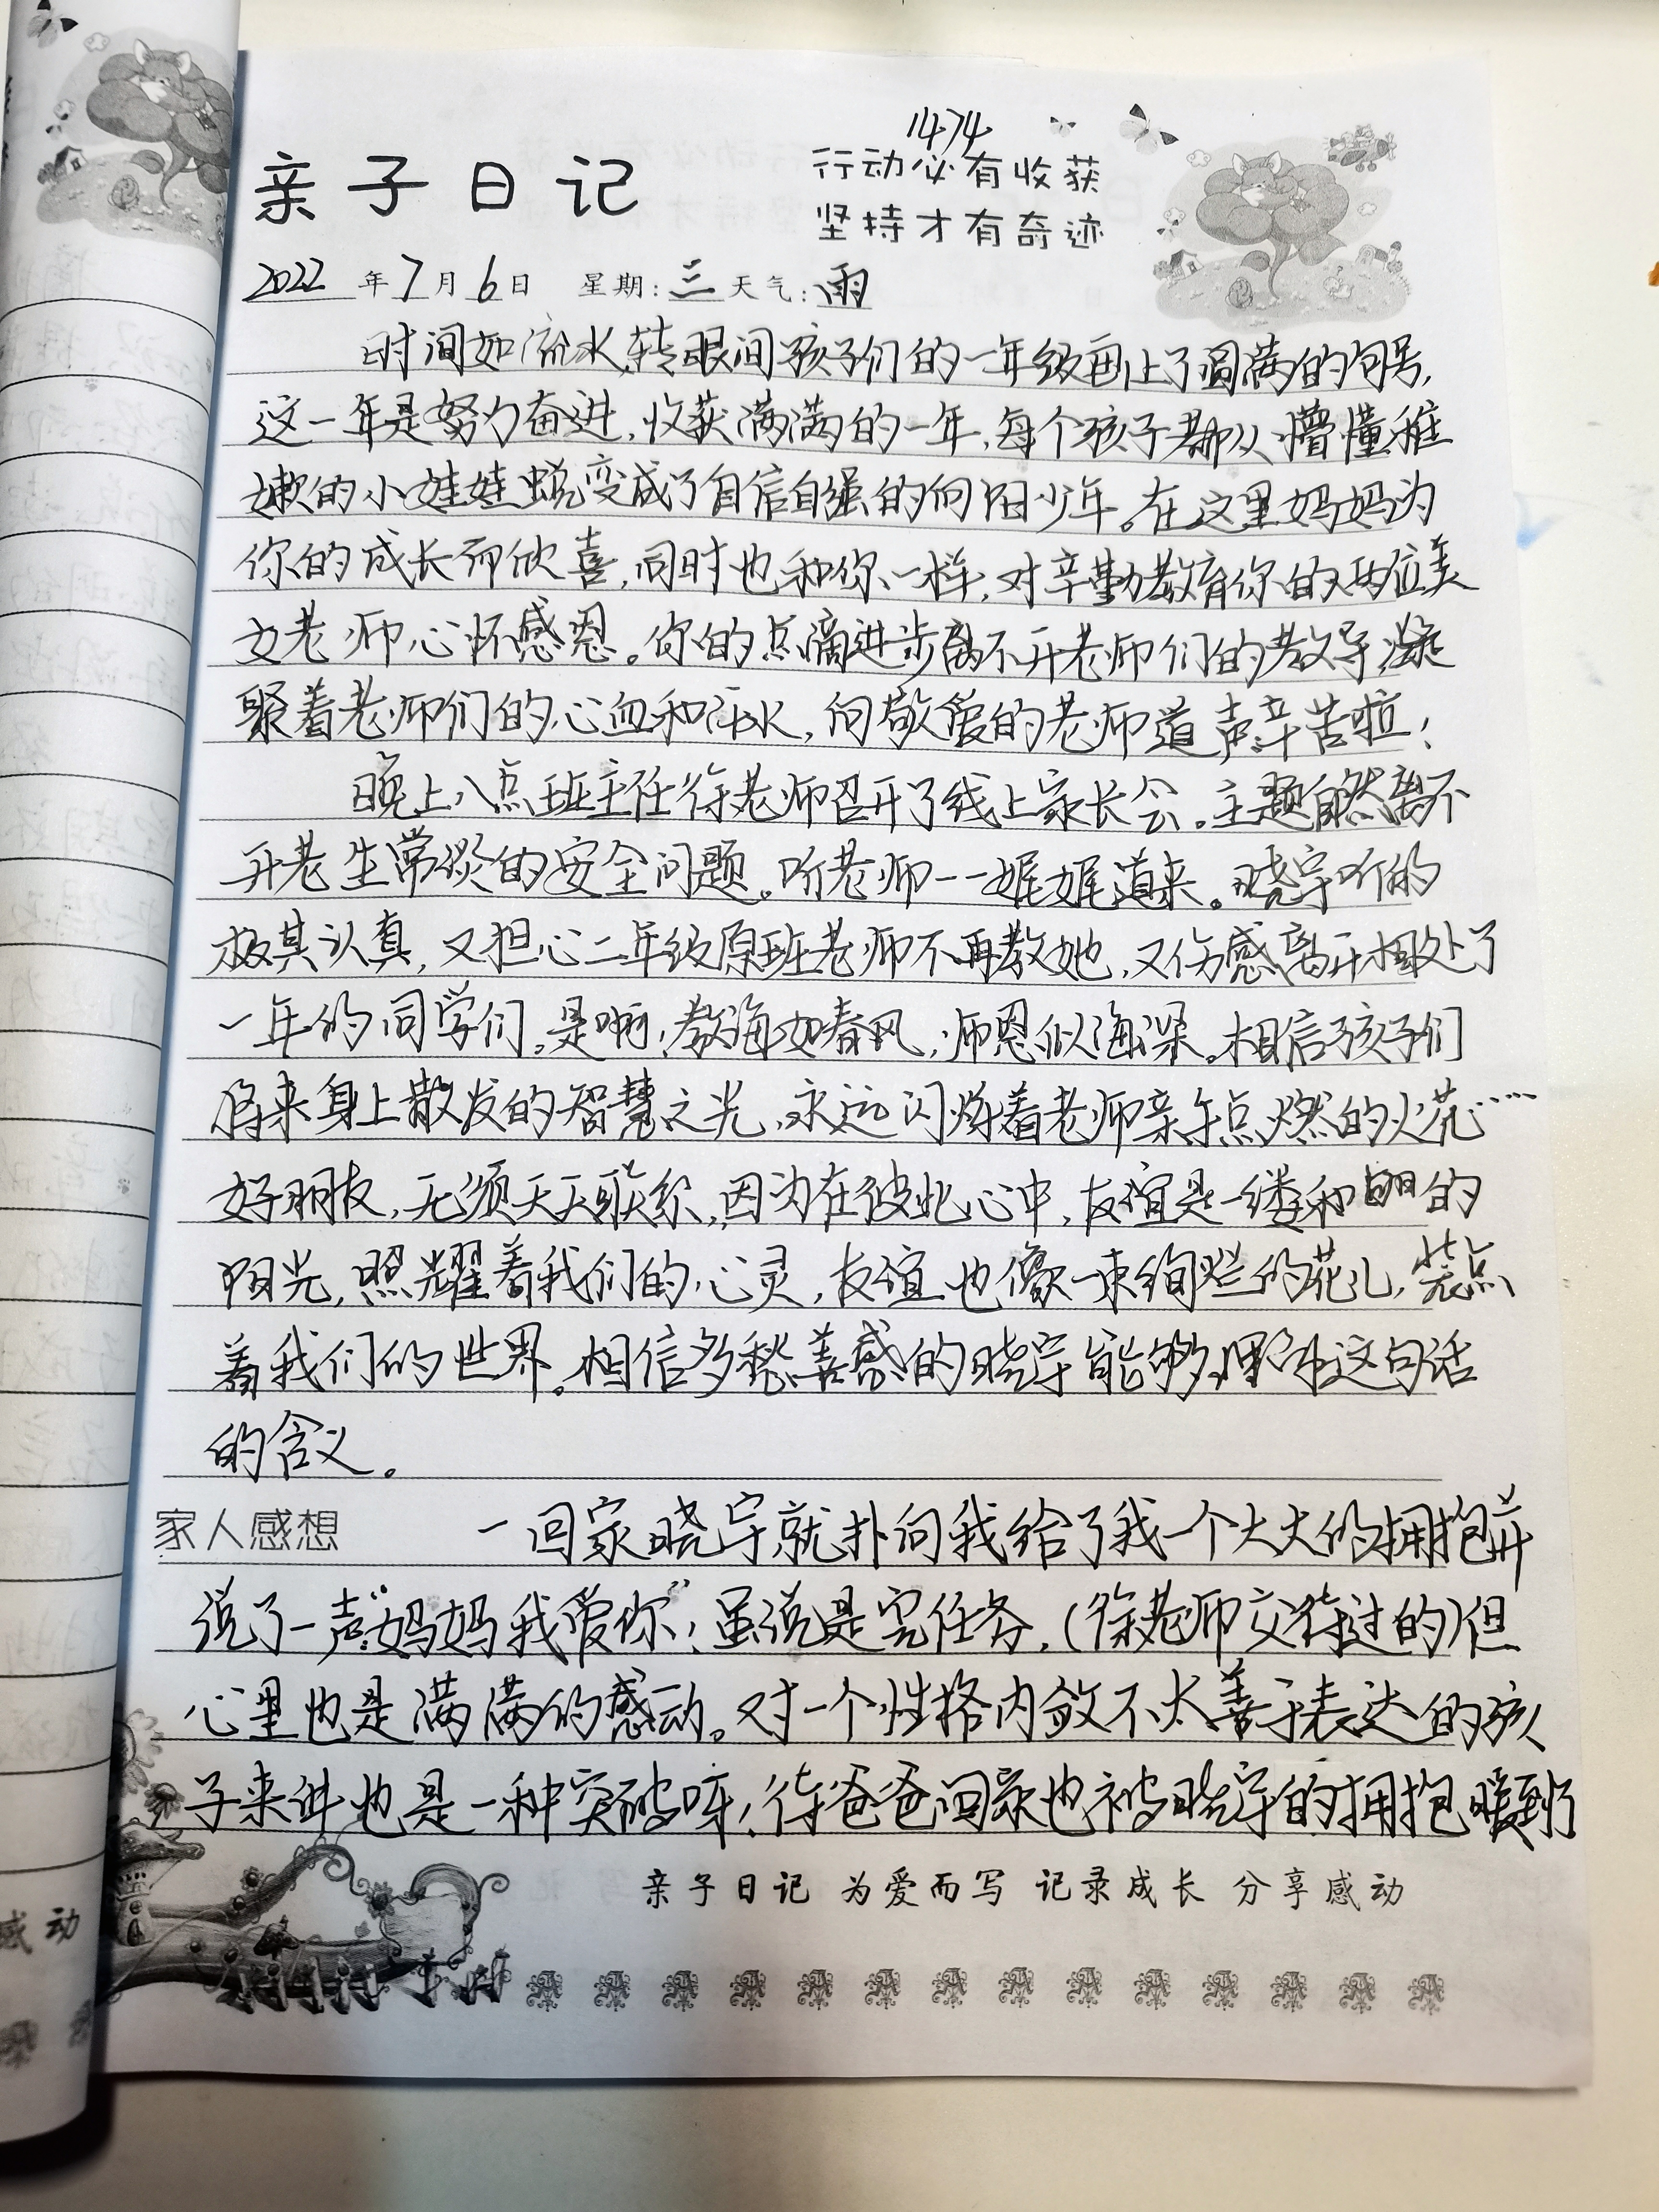 1474
亲子日记
行动必有收获
坚持才有奇迹
2022年7月6日 星期:三 天气:雨
时间如流水,转眼间孩子们的一年级画上了圆满的句号,
这一年是努力奋进,收获满满的一年,每个孩子都从懵懂稚
嫩的小娃娃蜕变成了自信自强的向阳少年。在这里妈妈为
你的成长而欣喜,同时也和你一样,对辛勤教育你的两位美
女老师心怀感恩。你的点滴进步离不开老师们的教导凝
聚着老师们的心血和汗水,向敬爱的老师道声辛苦啦!
晚上八点班主任徐老师召开了线上家长会。主题自然离不
开老生常谈的安全问题。听老师一一娓娓道来。晓宇听的
极其认真,又担心二年级原班老师不再教她,又伤感离开相处了
一年的同学们。是啊,教诲如春风,师恩似海深。相信孩子们
将来身上散发的智慧之光,永远闪烁着老师亲手点燃的火花……
好朋友,无须天天联系,因为在彼此心中,友谊是一缕和的
阳光,照耀着我们的心灵,友谊也像一束绚烂的花儿,装点
着我们的世界。相信多愁善感的晓宇能够理解这句话
的含义。
家人感想 一回家晓宇就扑向我给了我一个大大的拥抱并
说了一声“妈妈我爱你”!虽说是完任务,(徐老师交待过的)但
心里也是满满的感动。对一个性格内敛不太善于表达的孩
子来讲也是一种突破呀!待爸爸回家也被晓宇的拥抱暖到了
亲子日记 为爱而写 记录成长 分享感动
感动